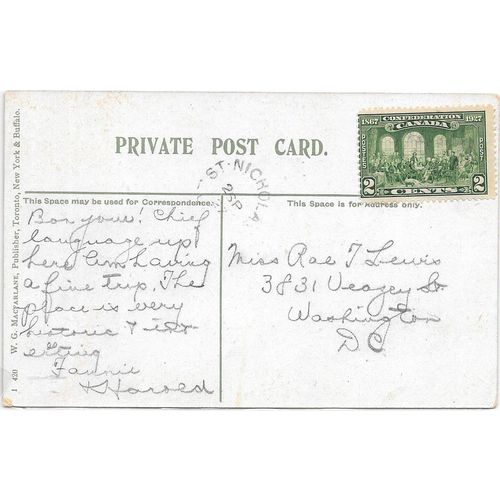 1867 CONFEDERATION 1927
CANADA
POSTAGE POSTAGE
2 CENTS 2
PRIVATE POST CARD.
ST-NICHOLA
26 SP
This Space may be used for Correspondence.
This Space is for Address only.
1 420 W. G. MACFARLANE, Publisher, Toronto, New York & Buffalo.
Bon your! Chief
language up
here. Am having
a fine trip. The
place is very
historic & int-
eresting
Fannie
& Harold
Miss Rae T Lewis
3831 Veazey St.
Washington
D.C.